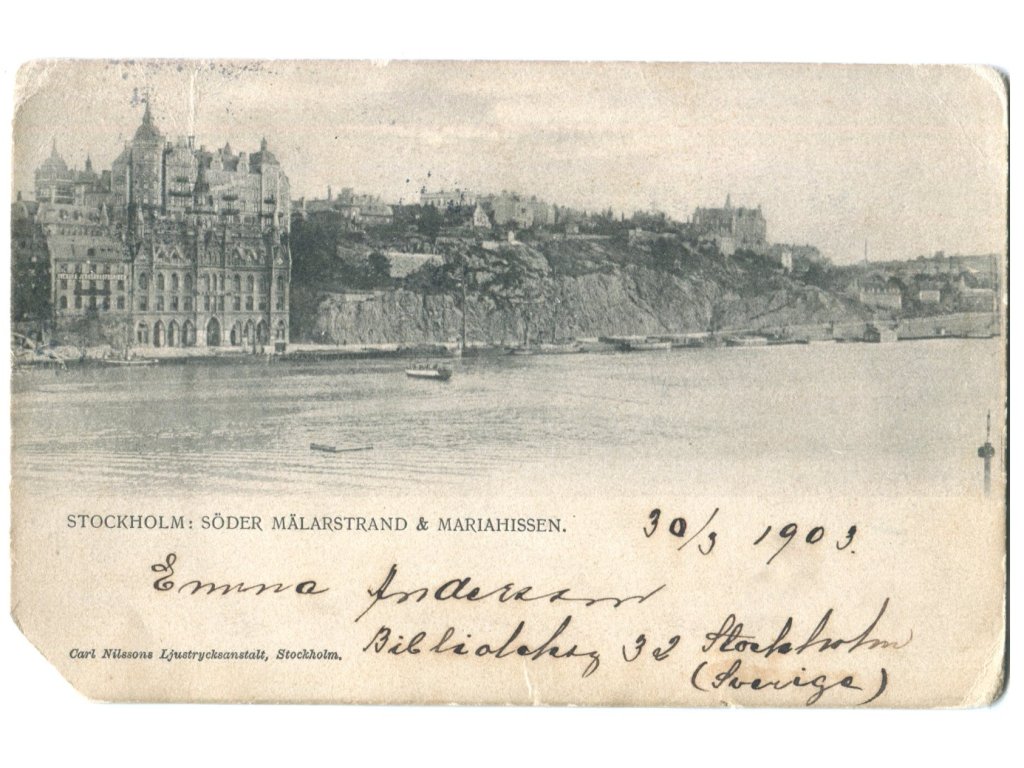 STOCKHOLM: SÖDER MÄLARSTRAND & MARIAHISSEN.
30/3 1903.
Emma Andersson
Biblioteksg 32 Stockholm
(Sverige)
Carl Nilssons Ljustrycksanstalt, Stockholm.